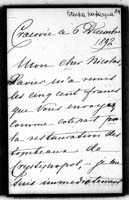 Cracovie ce 6 Décembre
1892
Mon cher Nicolas,
Xavier m'a remis
les cinq cent francs
que vous envoyez
comme cote part pour
la restauration des
tombeaux de
Krystynopol, – je me
suis immédiatement